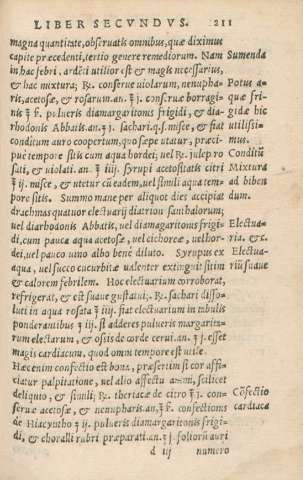 LIBER SECVNDVS. 211
magna quantitate, obseruatis omnibus, quæ diximus
capite præcedenti, tertio genere remediorum. Nam Sumenda
in hac febri. ardēti utilior est & magis necessarius,
& hac mixtura; ℞. conseruæ uiolarum, nenupha- Potus a-
ris, acetosæ, & rosarum. an. ℥ j. conseruæ borragi- quæ fri-
nis ℥ ß. pulueris diamargaritonis frigidi, & dia- gidæ hic
rhodonis Abbatis. an. ʒ j. sachari. q. s. misce, & fiat utilissi-
conditum auro coopertum, quo sæpe utatur, præci- mus.
puè tempore sitis cum aqua hordei; uel ℞. iulep. ro Conditū
sati, & uiolati. an. ℥ iiij. syrupi acetositatis citri Mixtura
℥ ij. misce, & utetur cū eadem, uel simili aqua tem- ad biben
pore sitis. Summo mane per aliquot dies accipiat dum.
drachmas quatuor electuarij diatrion santhalorum;
uel diarhodonis Abbatis, uel diamargaritonis frigi- Electua-
di, cum pauca aqua acetosæ, uel cichoreæ, uel hor- ria, &c.
dei, uel pauco uino albo bene diluto. Syrupus ex Electua-
aqua, uel succo cucurbitæ ualenter extinguit sitim riū suaue
& calorem febrilem. Hoc electuarium corroborat,
refrigerat, & est suaue gustatui; ℞. sachari disso-
luti in aqua rosata ℥ iiij. fiat electuarium in tabulis
ponderantibus ʒ iij. si adderes pulueris margarita-
rum electarum, & ossis de corde cerui. an. ʒ j. esset
magis cardiacum, quod omni tempore est utile
Hæc enim confectio est bona, præsertim si cor affi-
ciatur palpitatione, uel alio affectu animi, scilicet
deliquio, & simili; ℞. theriacæ de citro ℥ j. con- Cōfectio
seruæ acetosæ, & nenupharis. an. ℥ ß. confectionis cardiaca
de Hiacyntho ʒ ij. pulueris diamargaritonis frigi-
di, & choralli rubri præparati. an. ʒ j. foliorū auri
d iij numero